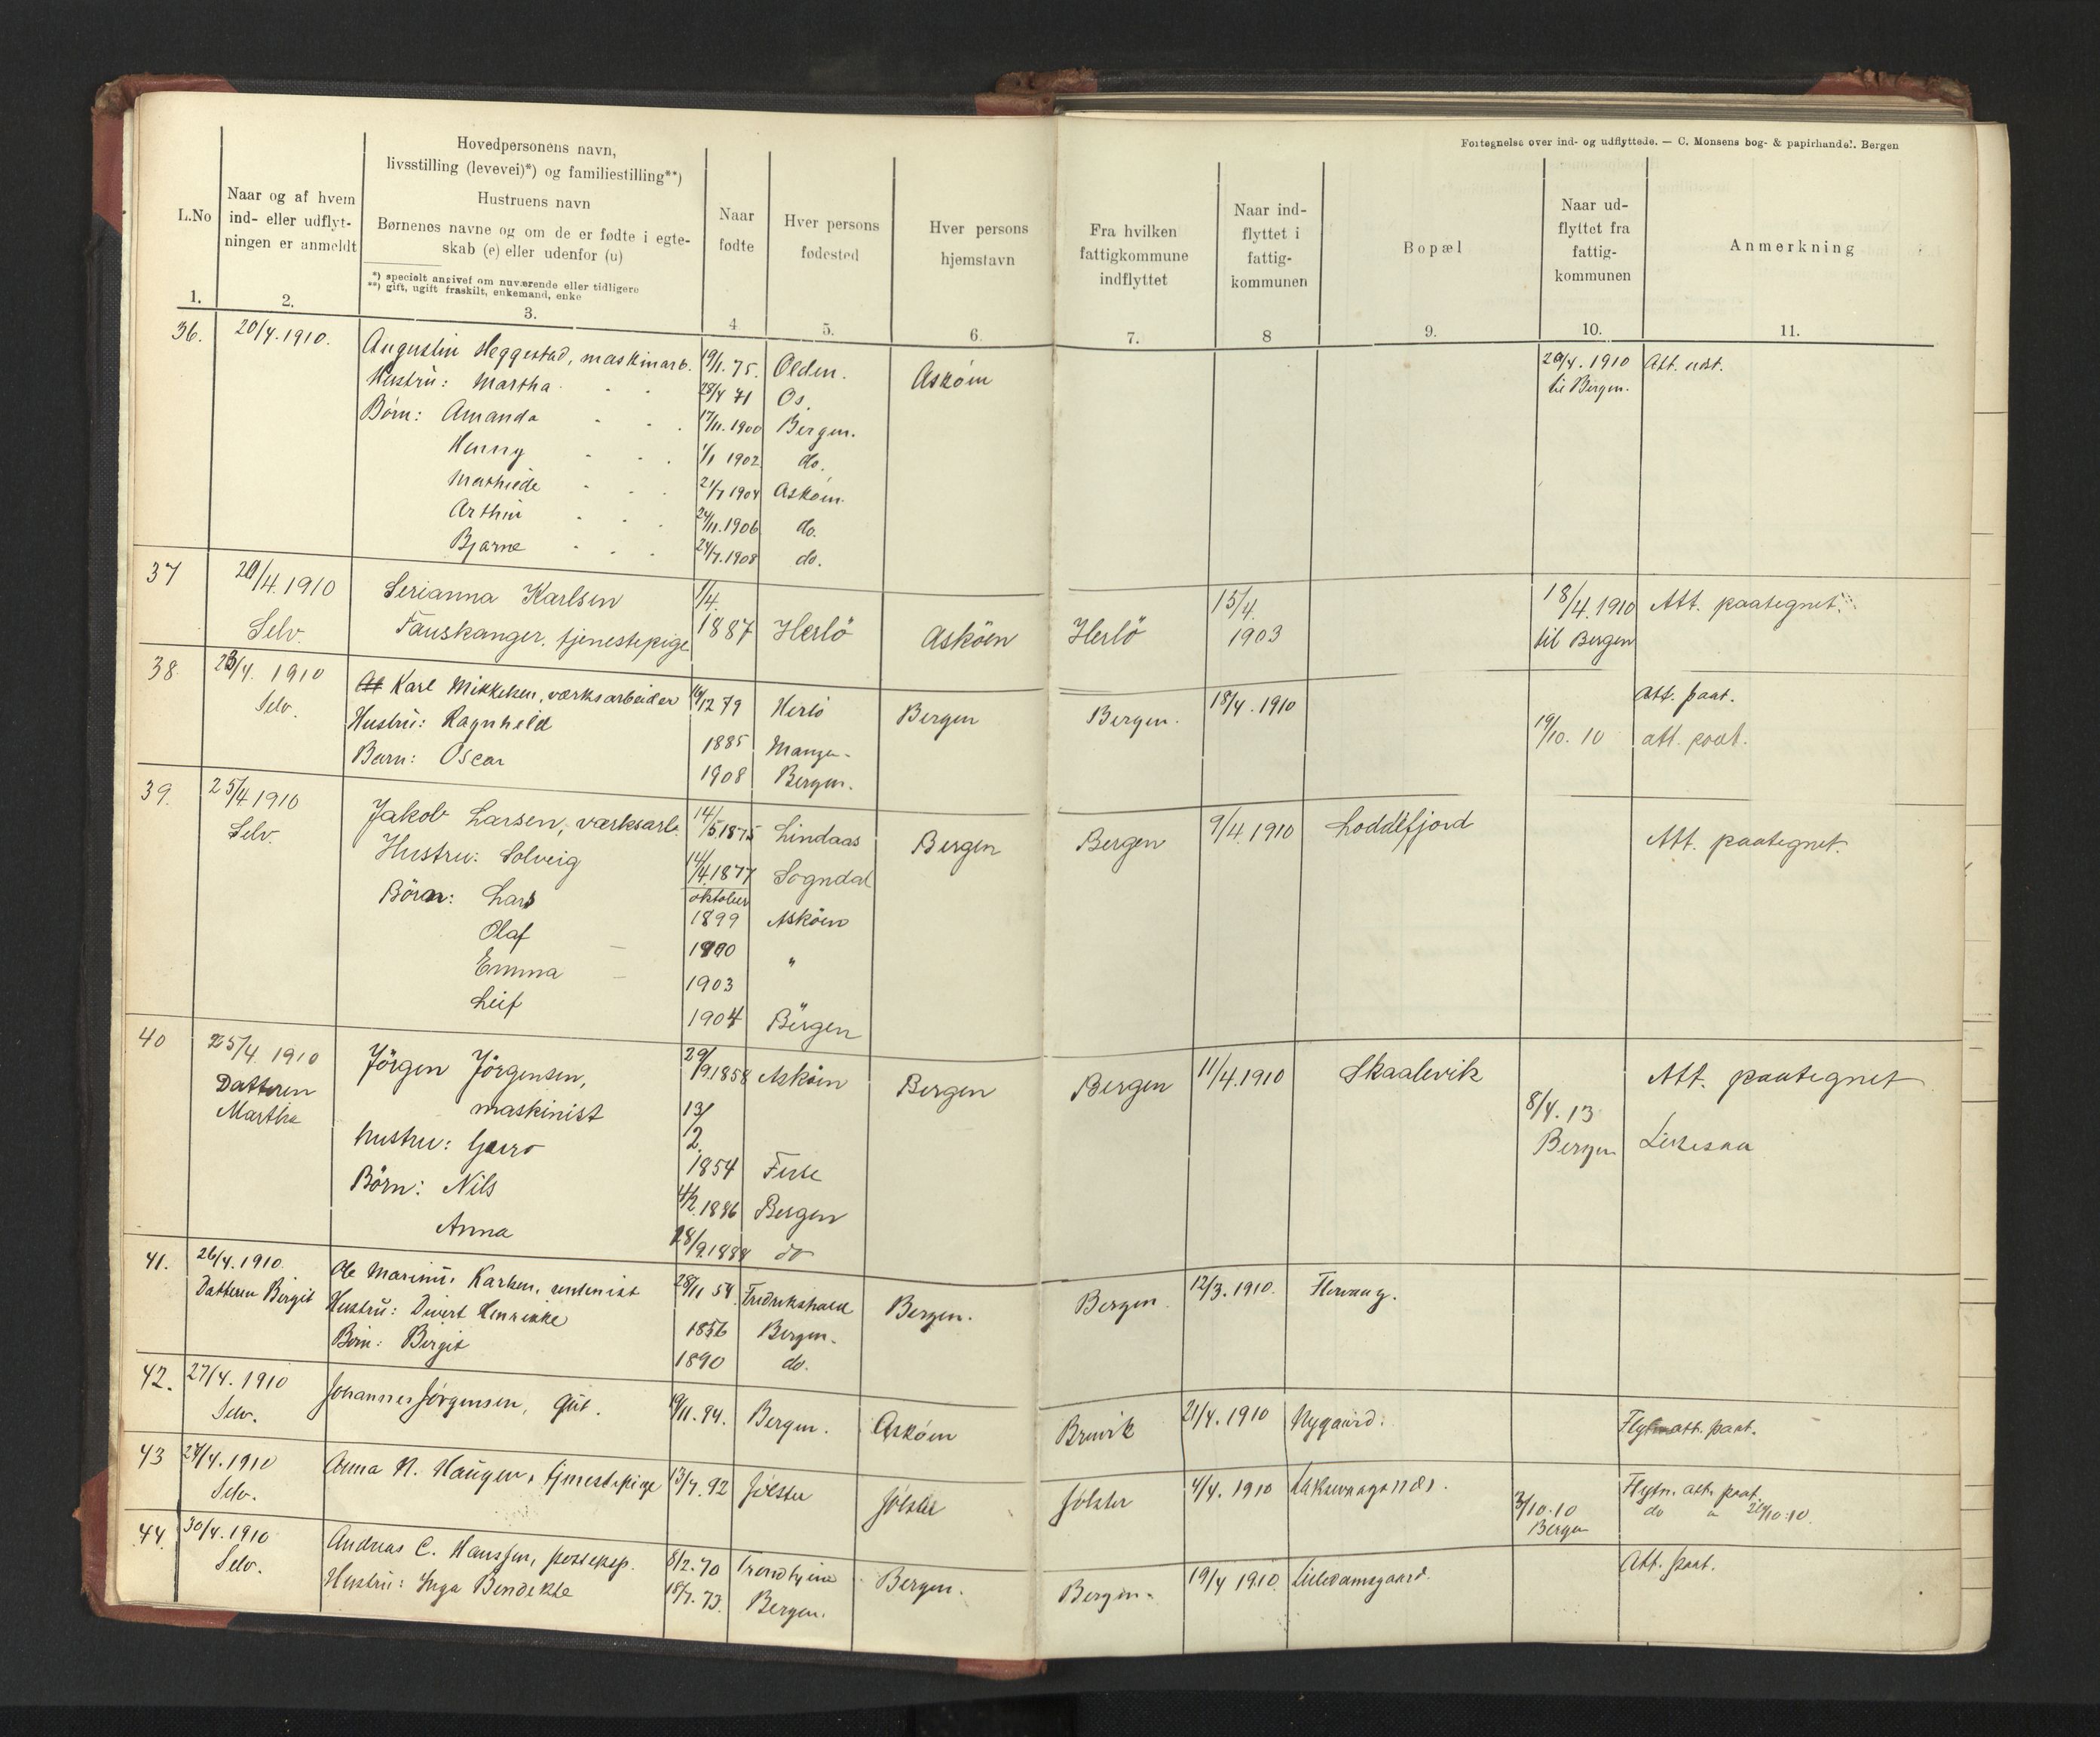 Fortegnelse over ind- og udflyttede. — C. Monsens bog- & papirhandel. Bergen
L.No
1.
Naar og af hvem
ind- eller udflyt-
ningen er anmeldt
2.
Hovedpersonens navn,
livsstilling (levevei)*) og familiestilling**)
Hustruens navn
Børnenes navne og om de er fødte i egte-
skab (e) eller udenfor (u)
*) specielt angivet om nuværende eller tidligere
**) gift, ugift fraskilt, enkemand, enke
3.
Naar
fødte
4
Hver persons
fødested
5.
Hver persons
hjemstavn
6.
Fra hvilken
fattigkommune
indflyttet
7.
Naar ind-
flyttet i
fattig-
kommunen
8
Bopæl
9.
Naar ud-
flyttet fra
fattig-
kommunen
10.
Anmerkning
11.
36. 20/4.1910. Augustin Heggestad, maskinarb. 19/1. 75. Olden. Askøen 20/4. 1910 Att. udst.
Hustru: Martha 28/4 71 Os. til Bergen.
Børn: Amanda 17/11.1900 Bergen.
Henny 1/1 1902 do.
Mathilde 21/7 1904 Askøen.
Arthur 24/11.1906 do.
Bjarne 24/7.1908 do.
37 20/4.1910 Serianna Karlsen 1/4. 15/4. 18/4.1910 Att. paategnet.
Selv. Fauskanger. tjenestepige 1887 Herlö Asköen Herlö 1903 til Bergen
38. 23/4. 1910 Karl Mikkelsen, værksarbeider 16/12 79 Herlö Bergen Bergen. 18/4. 1910 Att. paat.
Selv. Hustru: Ragnhild 1885 Manger. 19/10. 10 att. paat.
Barn: Oscar 1908 Bergen.
39. 25/4 1910 Jakob Larsen, værksarb. 14/5 1875 Lindaas Bergen Bergen 9/4.1910 Loddefjord Att. paategnet.
Selv. Hustru: Solveig 14/4.1877 Sogndal
Börn: Lars oktober
1899 Asköen
Olaf 1900 "
Emma 1903
Leif 1904 Bergen
40 25/4. 1910 Jörgen Jörgensen, 29/9.1858 Asköen Bergen Bergen 11/4.1910 Skaalevik Att. paategnet
Datteren maskinist 13/ 8/4. 13
Martha hustru: 2. Bergen
1854 Fuse
Börn: Nils 4/2.1886 Bergen
Anna 28/9.1888 do
41. 26/4.1910. Ole Marinus Karlsen, rentenist 28/11 54. Fredrikshald Bergen. Bergen. 12/3. 1910.
Datteren Birgit Hustru: Henrikke 1856 Bergen.
Børn: Birgit 1890 do.
42. 27/4. 1910 Johannes Jørgensen, gut. 19/11. 94. Bergen. Askøen Bruvik 21/4. 1910 Nygaard. att. paat.
Selv.
43 27/4.1910 Anna N. Haugen, tjenestepige 13/7. 92 Jølster Jølster Jølster 4/4. 1910 Laksevaagsnes. Flytn. att. paat.
Selv. 3/10.10 do
Bergen
44. 30/4.1910 Andreas C. Hanssen, postexp. 8/2.70 Trondhjem Bergen. Bergen. 19/4 1910. Lilledamsgaard. Att. paat.
Selv. Hustru: Inga Bendikte 18/7. 73. Bergen.